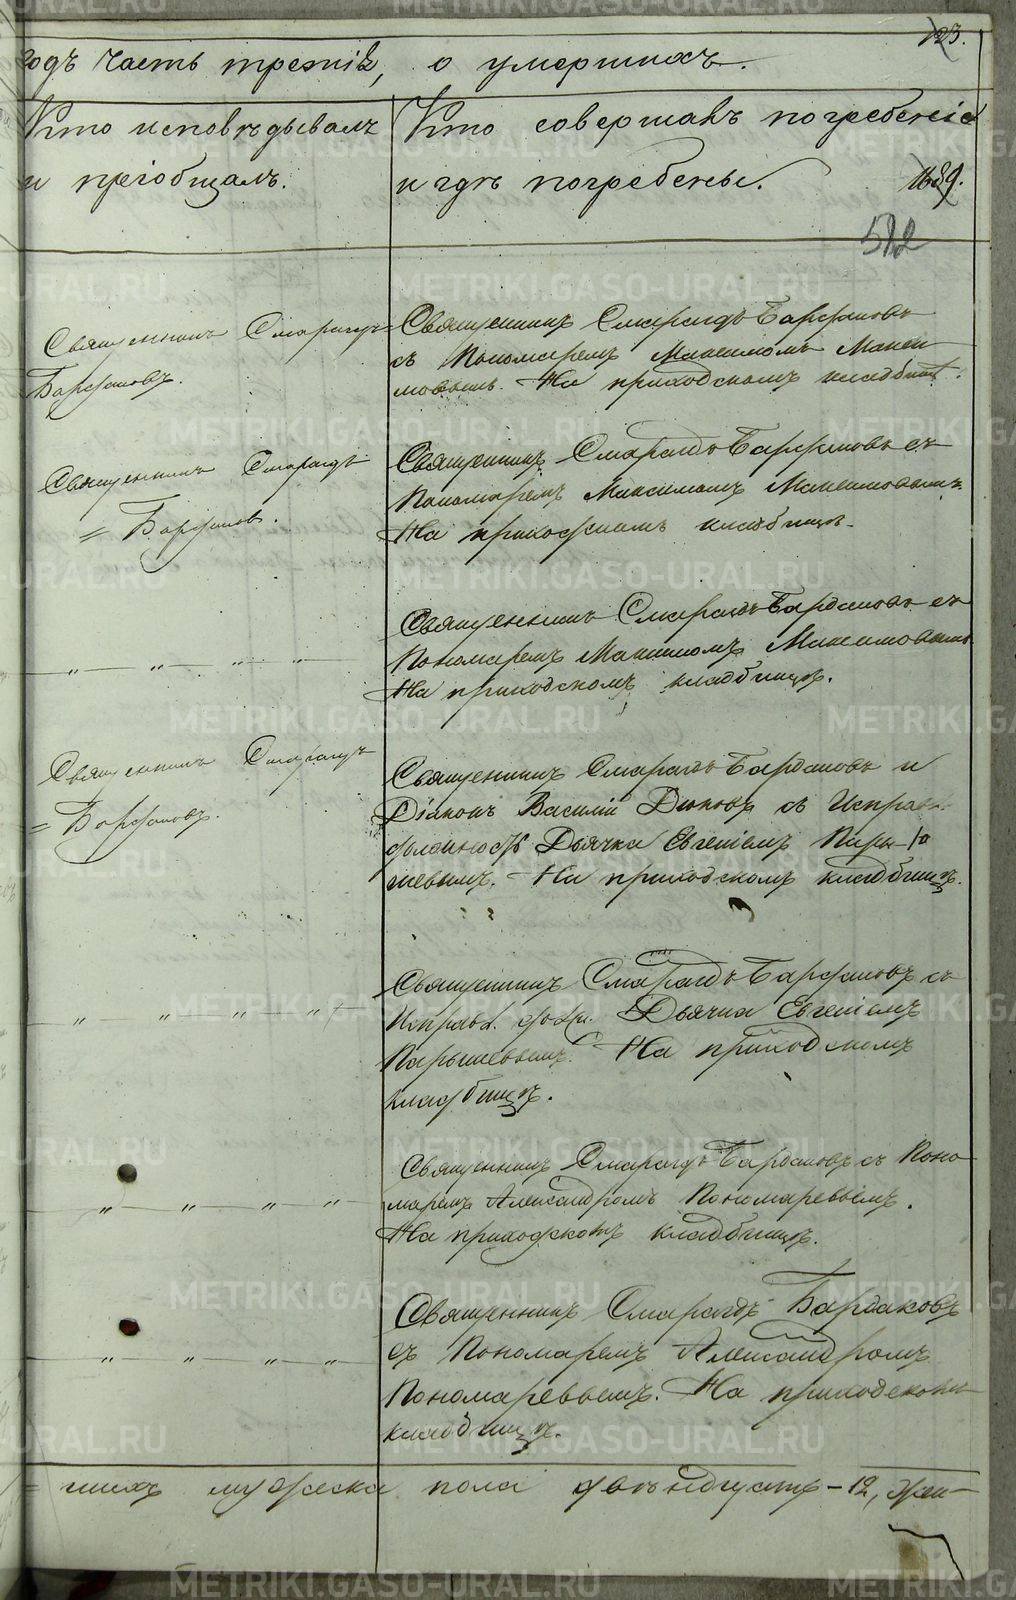 123.
годъ часть третія, о умершихъ.
Кто исповѣдывалъ
и пріобщалъ.
Кто совершалъ погребеніе
и гдѣ погребены.
589.
512
Священникъ Смарагдъ
Бардаковъ.
Священникъ Смарагдъ Бардаковъ
съ Пономаремъ Максимомъ Макси
мовымъ. На приходскомъ кладбищѣ.
Священникъ Смарагдъ
= Бардаковъ.
Священникъ Смарагдъ Бардаковъ съ
Пономаремъ Максимомъ Максимовымъ.
На приходскомъ кладбищѣ.
— „ — „ — „ — „ —
Священникъ Смарагдъ Бардаковъ съ
Пономаремъ Максимомъ Максимовымъ.
На приходскомъ кладбищѣ.
Священникъ Смарагдъ
= Бардаковъ.
Священникъ Смарагдъ Бардаковъ и
Діаконъ Василій Дюковъ съ Исправл.
должность Дьячка Евгеніемъ Пары-
шевымъ. На приходскомъ кладбищѣ.
— „ — „ — „ — „ —
Священникъ Смарагдъ Бардаковъ съ
Исправл. долж. Дьячка Евгеніемъ
Парышевымъ. На приходскомъ
кладбищѣ.
— „ — „ — „ — „ —
Священникъ Смарагдъ Бардаковъ съ Поно
маремъ Александромъ Пономаревымъ.
На приходскомъ кладбищѣ.
— „ — „ — „ — „ —
Священникъ Смарагдъ Бардаковъ
съ Пономаремъ Александромъ
Пономаревымъ. На приходскомъ
кладбищѣ.
= шихъ мужеска пола двѣнадцать – 12, жен-
METRIKI.GASO-URAL.RU